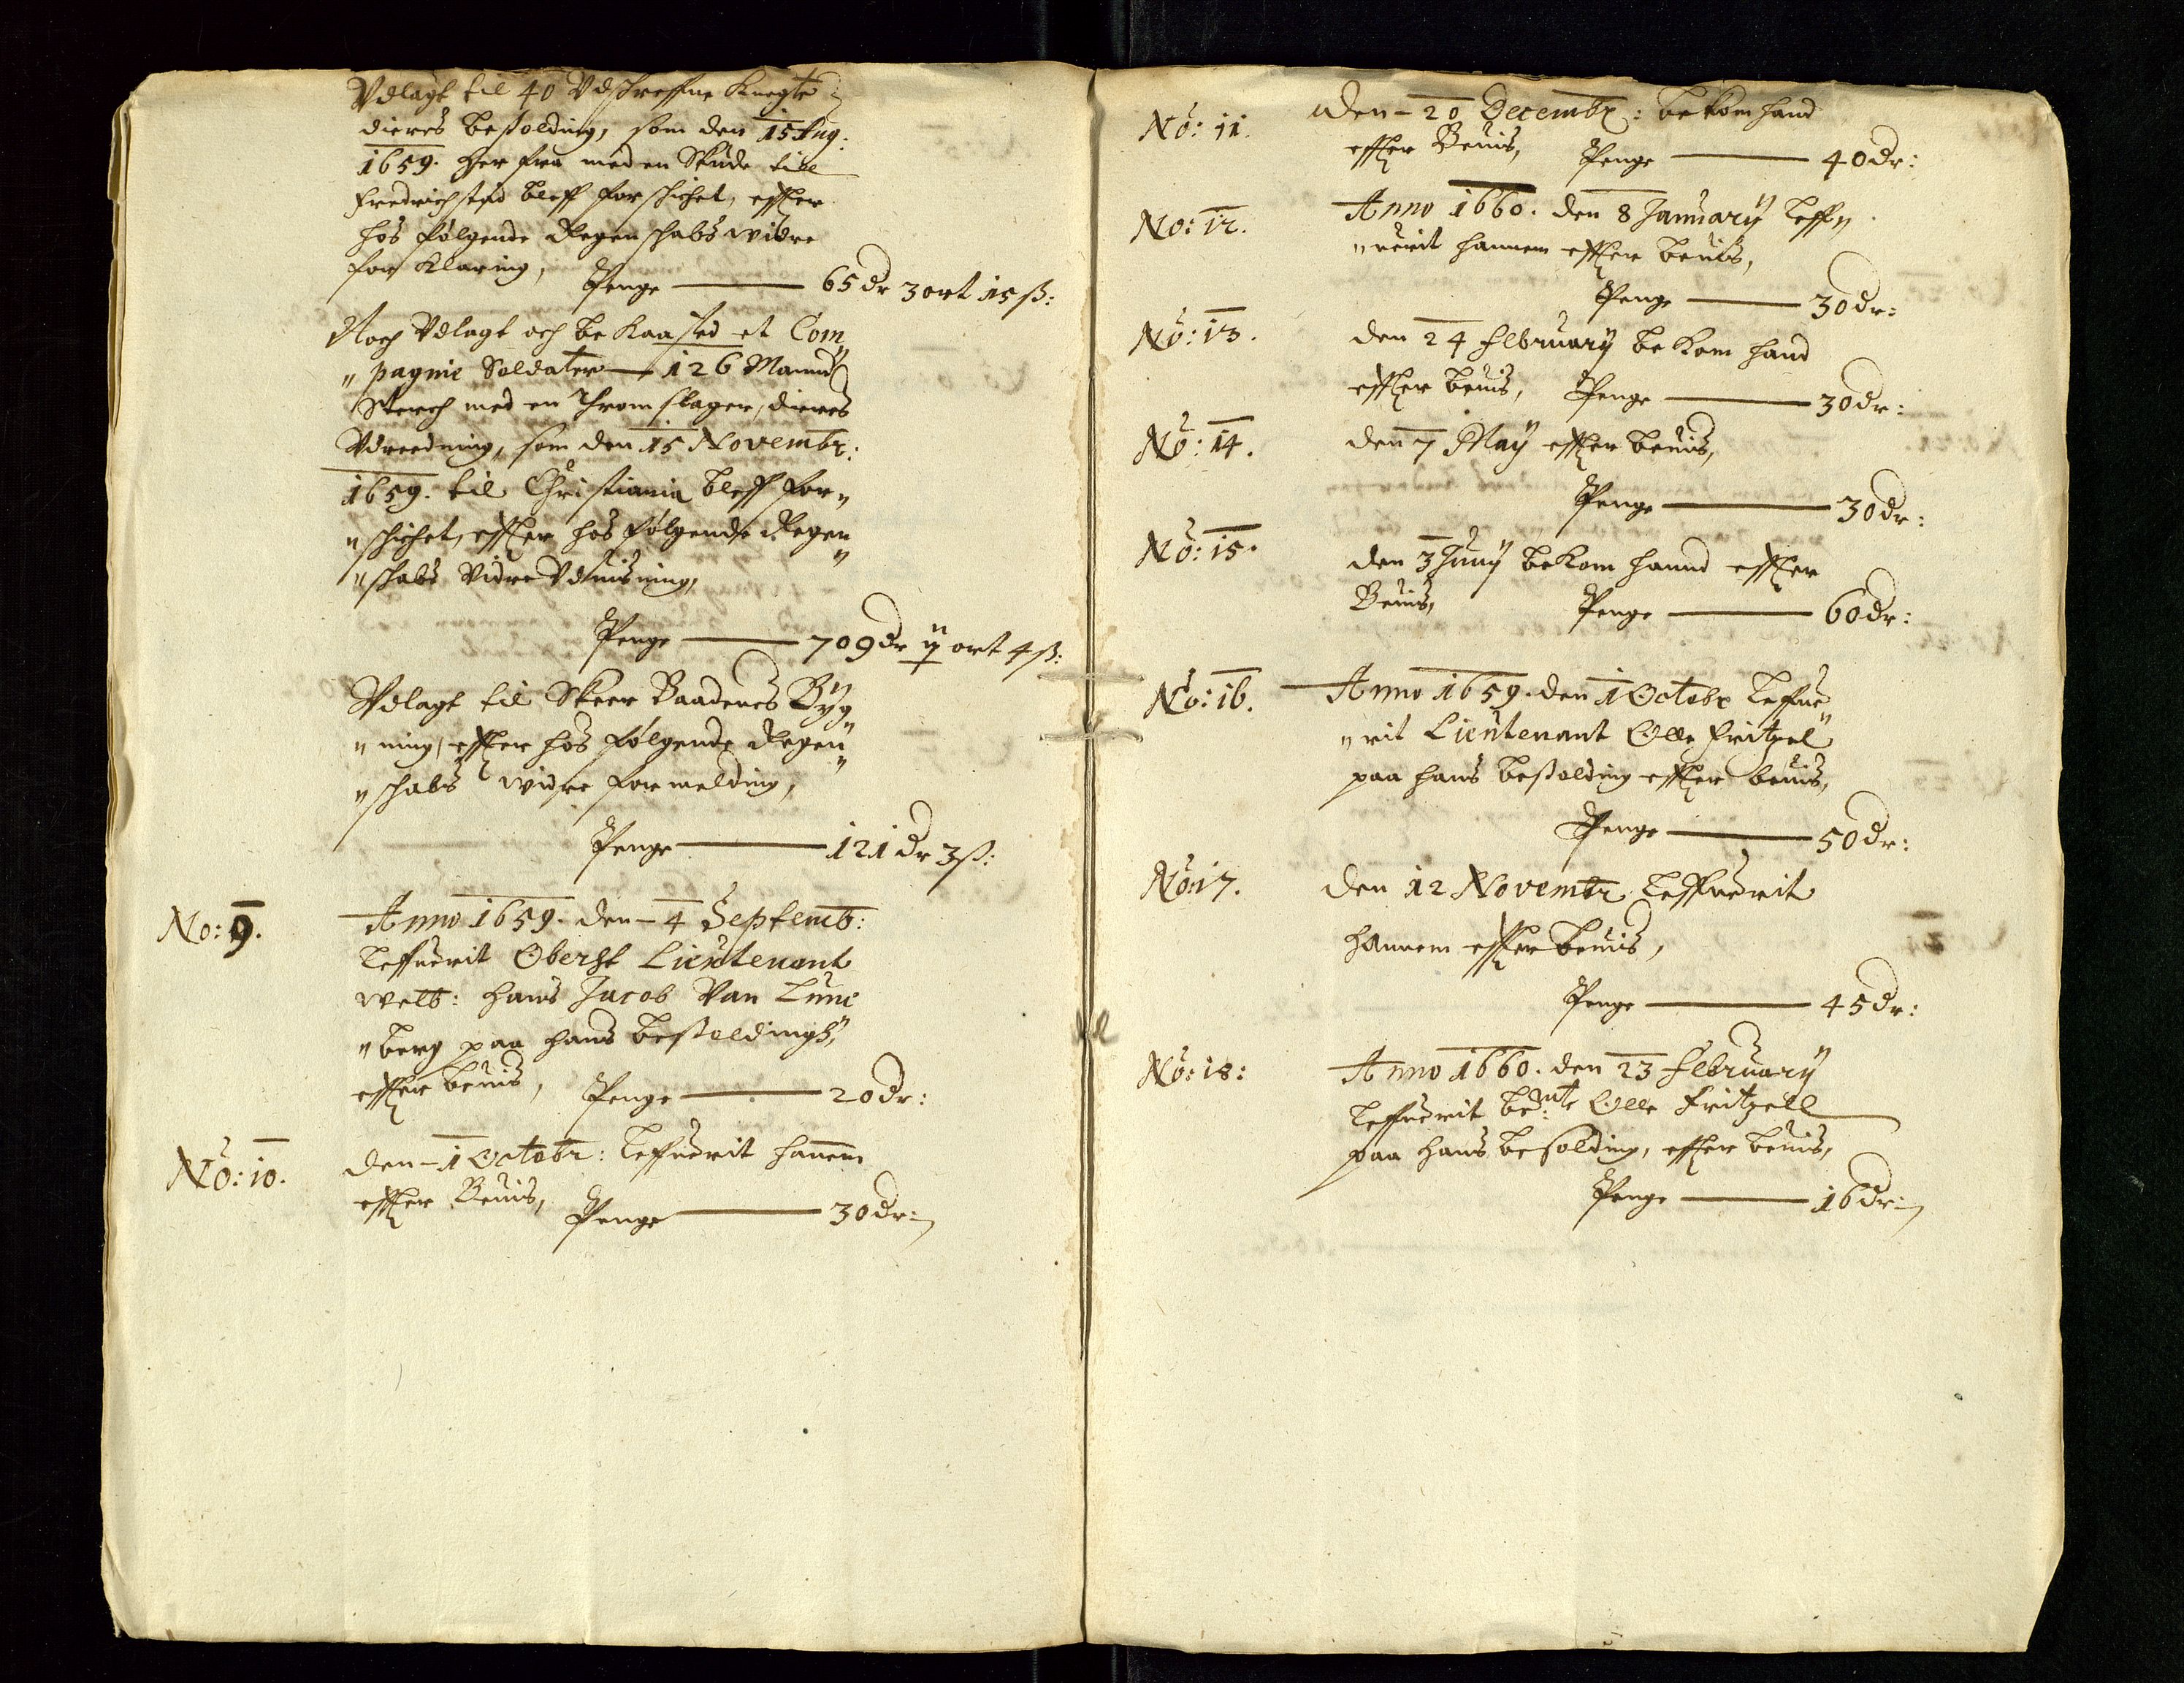 Vdlagt til 40 Vdschreffne Knegte
dieres besolding, som den 15 Aug:
1659. her fra med en Skude till
Fredrichstad bleff forschichet, effter
hos følgende Regenschabs widre
forklaring, Penge — 65 dr 3 ort 15 ß:
Noch Vdlagt och bekaasted et Com„
„pagnie Soldater — 126 Mannd
Sterch med en Thromslager, dieres
Vdreedning, som den 15 Novembr:
1659. til Christiania bleff for„
„schichet, effter hos følgende Regen„
„schabs Vidre Vduisning,
Penge — 709 dr ij ort 4 ß:
Vdlagt til Skeer Baadenes Byg„
„ning, effter hos følgende Regen„
„schabs widre formelding,
Penge — 121 dr 3 ß:
No: 9. Anno 1659. den - 4 Septemb:
Leffuerit Oberst Lieutenant
welb: Hans Jacob Van Lune
„berg paa hans besoldings,
effter beuis, Penge — 20 dr:
No: 10. den - 1 Octobr: Leffuerit hannem
effter Beuis, Penge — 30 dr:
No: 11. den - 20 Decembr: bekom hand
effter Beuis, Penge — 40 dr:
No: 12. Anno 1660. den 8 January Leff„
„uerit hannem effter beuis,
Penge — 30 dr:
No: 13. den 24 February bekom hand
effter beuis, Penge — 30 dr:
No: 14. den 7 May effter beuis,
Penge — 30 dr:
No: 15. den 3 Juny bekom hannd effter
Beuis, Penge — 60 dr:
No: 16. Anno 1659. den 1 Octobr Leffue„
„rit Lieutenant Olle Fritzel
paa hans besolding effter beuis,
Penge — 50 dr:
No: 17. den 12 Novembr Leffuerit
hannem effter beuis,
Penge — 45 dr:
No: 18: Anno 1660. den 23 February
Leffuerit bem:te Olle Fritzell
paa hans besolding, effter beuis,
Penge — 16 dr: